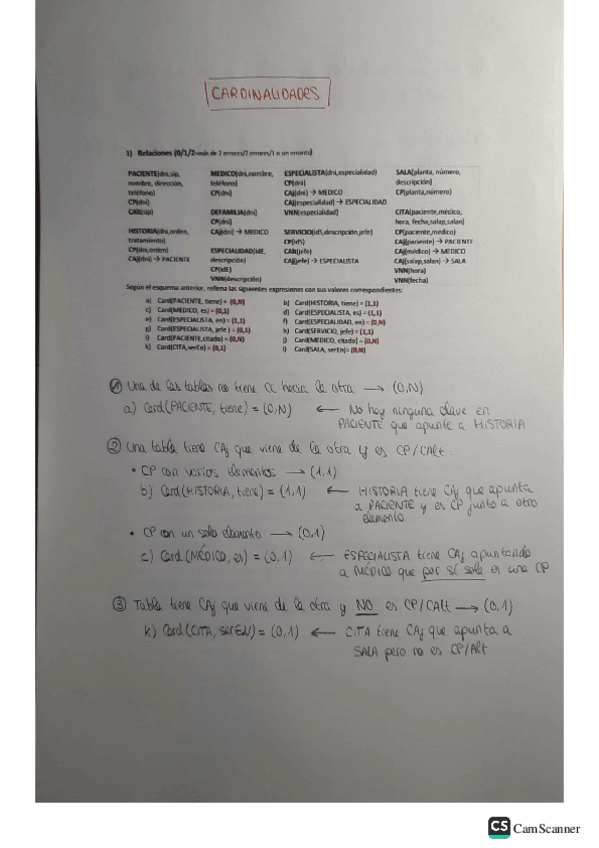 CARDINALIDADES
1) Relaciones (0/1/2=más de 2 errores/2 errores/1 o sin errores)
PACIENTE(dni,sip,
nombre, dirección,
teléfono)
CP(dni)
CAlt(sip)
HISTORIA(dni,orden,
tratamiento)
CP(dni,orden)
CAj(dni) → PACIENTE
MEDICO(dni,nombre,
teléfono)
CP(dni)
DEFAMILIA(dni)
CP(dni)
CAj(dni) → MEDICO
ESPECIALIDAD(idE,
descripción)
CP(idE)
VNN(descripción)
ESPECIALISTA(dni,especialidad)
CP(dni)
CAj(dni) → MEDICO
CAj(especialidad) → ESPECIALIDAD
VNN(especialidad)
SERVICIO(idS,descripción,jefe)
CP(idS)
CAlt(jefe)
CAj(jefe) → ESPECIALISTA
SALA(planta, número,
descripción)
CP(planta,número)
CITA(paciente,médico,
hora, fecha,salap,salan)
CP(paciente,médico)
CAj(paciente) → PACIENTE
CAj(médico) → MEDICO
CAj(salap,salan) → SALA
VNN(hora)
VNN(fecha)
Según el esquema anterior, rellena las siguientes expresiones con sus valores correspondientes:
a) Card(PACIENTE, tiene) = (0,N) b) Card(HISTORIA, tiene) = (1,1)
c) Card(MEDICO, es) = (0,1) d) Card(ESPECIALISTA, es) = (1,1)
e) Card(ESPECIALISTA, en) = (1,1) f) Card(ESPECIALIDAD, en) = (0,N)
g) Card(ESPECIALISTA, jefe ) = (0,1) h) Card(SERVICIO, jefe) = (1,1)
i) Card(PACIENTE,citado) = (0,N) j) Card(MEDICO, citado) = (0,N)
k) Card(CITA,serEn) = (0,1) l) Card(SALA, serEn)= (0,N)
① Una de las tablas no tiene CA hacia la otra → (0,N)
a) Card(PACIENTE, tiene) = (0,N) ← No hay ninguna clave en
PACIENTE que apunte a HISTORIA
② Una tabla tiene CAj que viene de la otra y es CP/CAlt:
• CP con varios elementos → (1,1)
b) Card(HISTORIA, tiene) = (1,1) ← HISTORIA tiene CAj que apunta
a PACIENTE y es CP junto a otro
elemento.
• CP con un solo elemento → (0,1)
c) Card(MÉDICO, es) = (0,1) ← ESPECIALISTA tiene CAj apuntando
a MÉDICO que por sí sola es una CP
③ Tabla tiene CAj que viene de la otra y NO es CP/CAlt → (0,1)
k) Card(CITA, serEN) = (0,1) ← CITA tiene CAj que apunta a
SALA pero no es CP/Alt
CS CamScanner